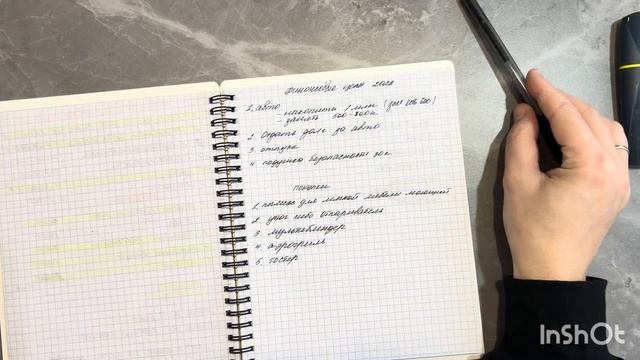 финансовые цели 2026
1. авто
- накопить 1 млн (уже 200 000)
- занять 500-800к
2. Отдать долг за авто
3. отпуск
4. подушка безопасности 30к
покупки
1. пылесос для мягкой мебели моющий
2. утюг либо отпариватель
3. мультиблендер
4. аэрогриль
5. тостер
InShOt